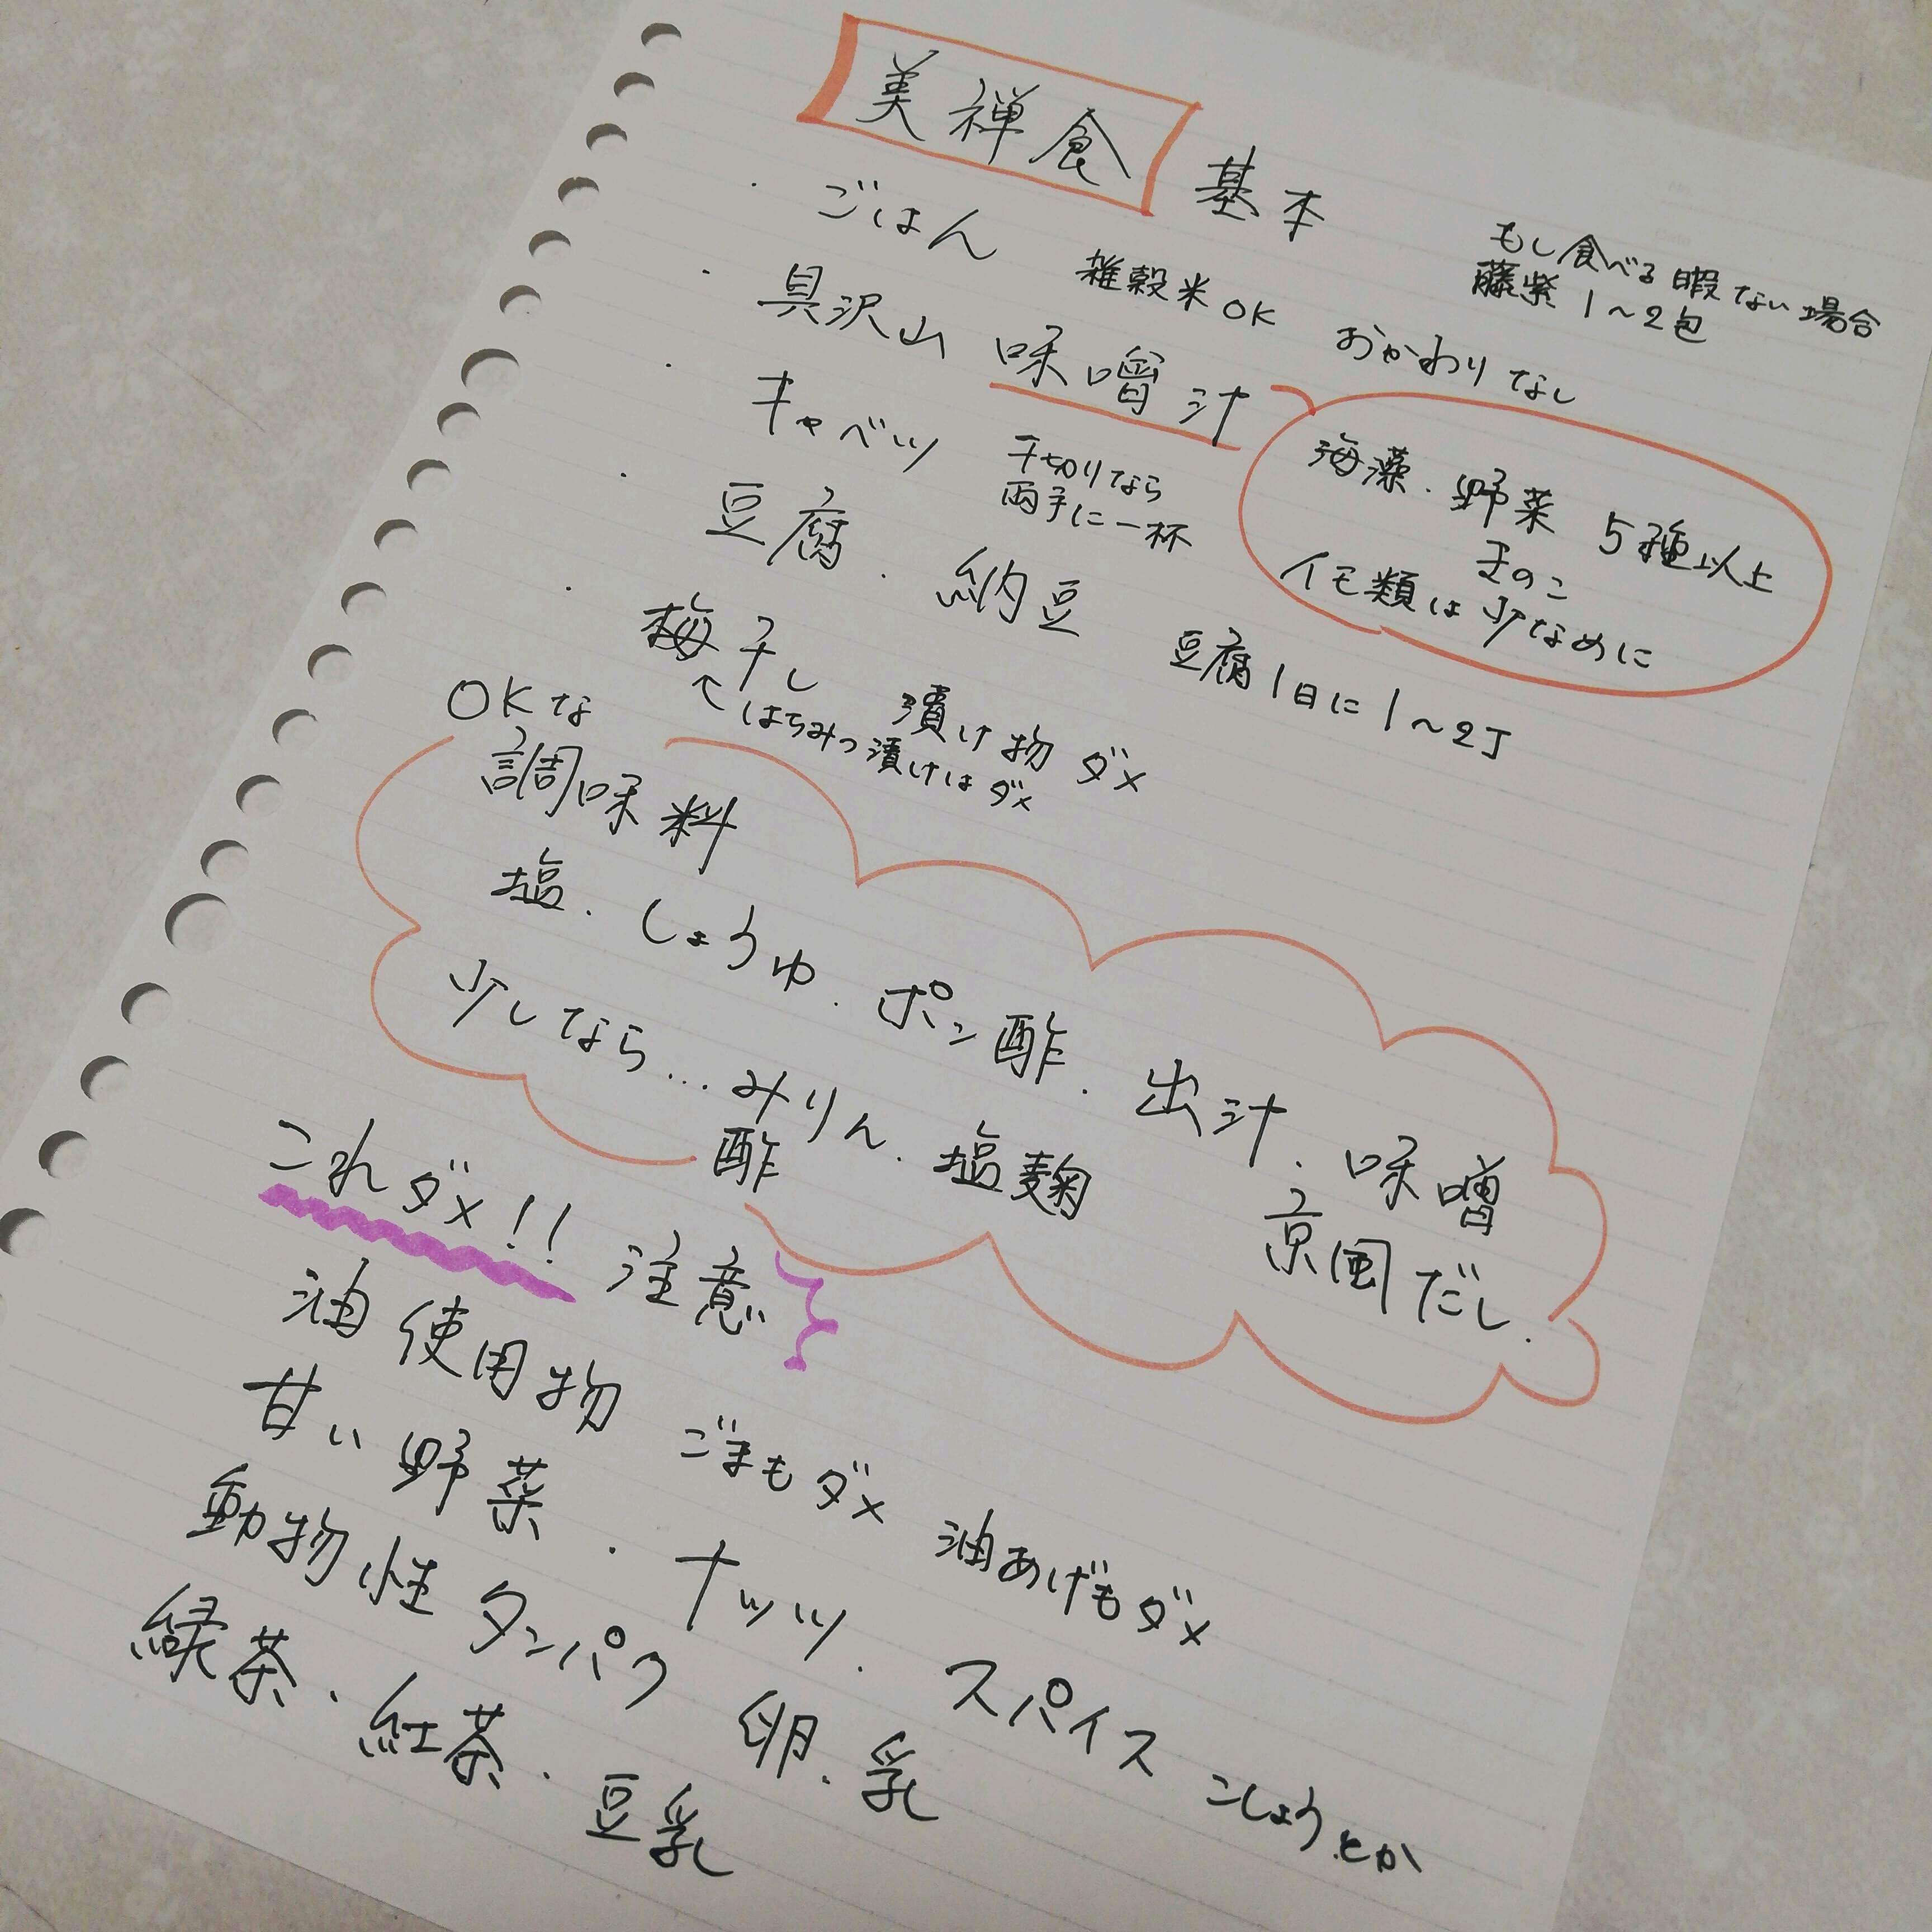 美禅食 基本
もし食べる暇ない場合
藤紫 1〜2包
・ごはん 雑穀米OK おかわりなし
・具沢山 味噌汁
海藻・野菜 5種以上
きのこ
イモ類は少なめに
・キャベツ 千切りなら
両手に一杯
・豆腐・納豆 豆腐1日に1〜2丁
・梅干し 漬け物ダメ
↑はちみつ漬けはダメ
OKな
調味料
塩・しょうゆ・ポン酢・出汁・味噌
京風だし.
少しなら…みりん・塩麹
酢
これダメ!! 注意
油使用物 ごまもダメ 油あげもダメ
甘い野菜・ナッツ・スパイス こしょうとか
動物性タンパク 卵・乳
緑茶・紅茶・豆乳